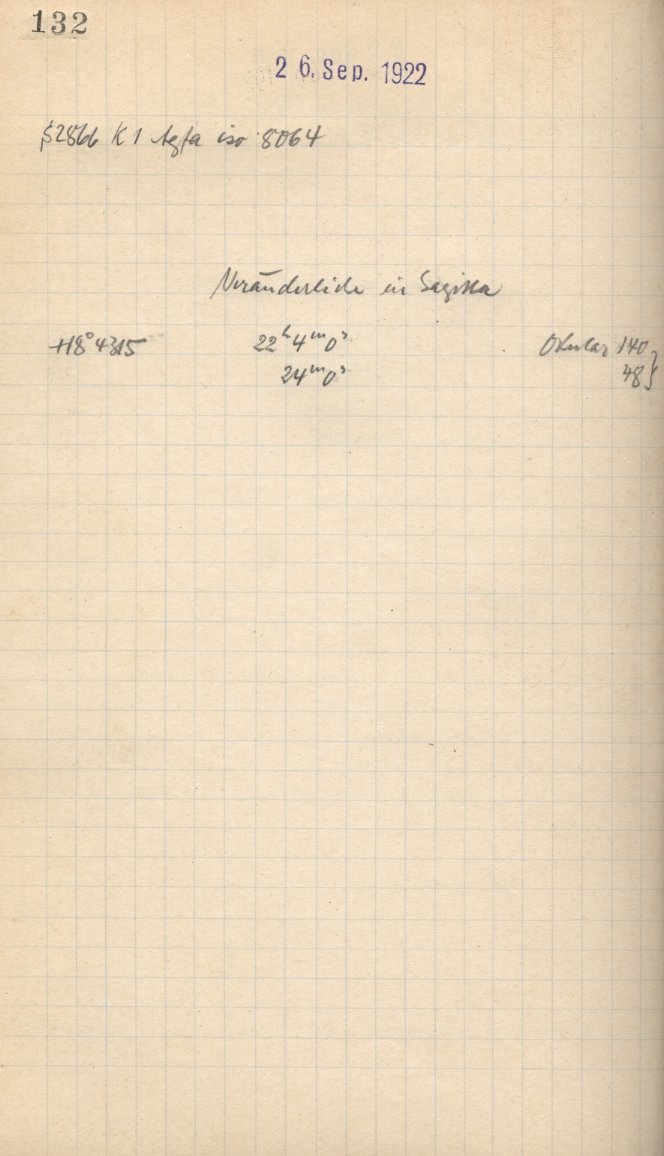 132
26. Sep. 1922
S2866 K1 Agfa iso 8064
Veränderliche in Sagitta
+18° 4315 22ʰ 4ᵐ 0ˢ Okular 140
24ᵐ 0ˢ 48}